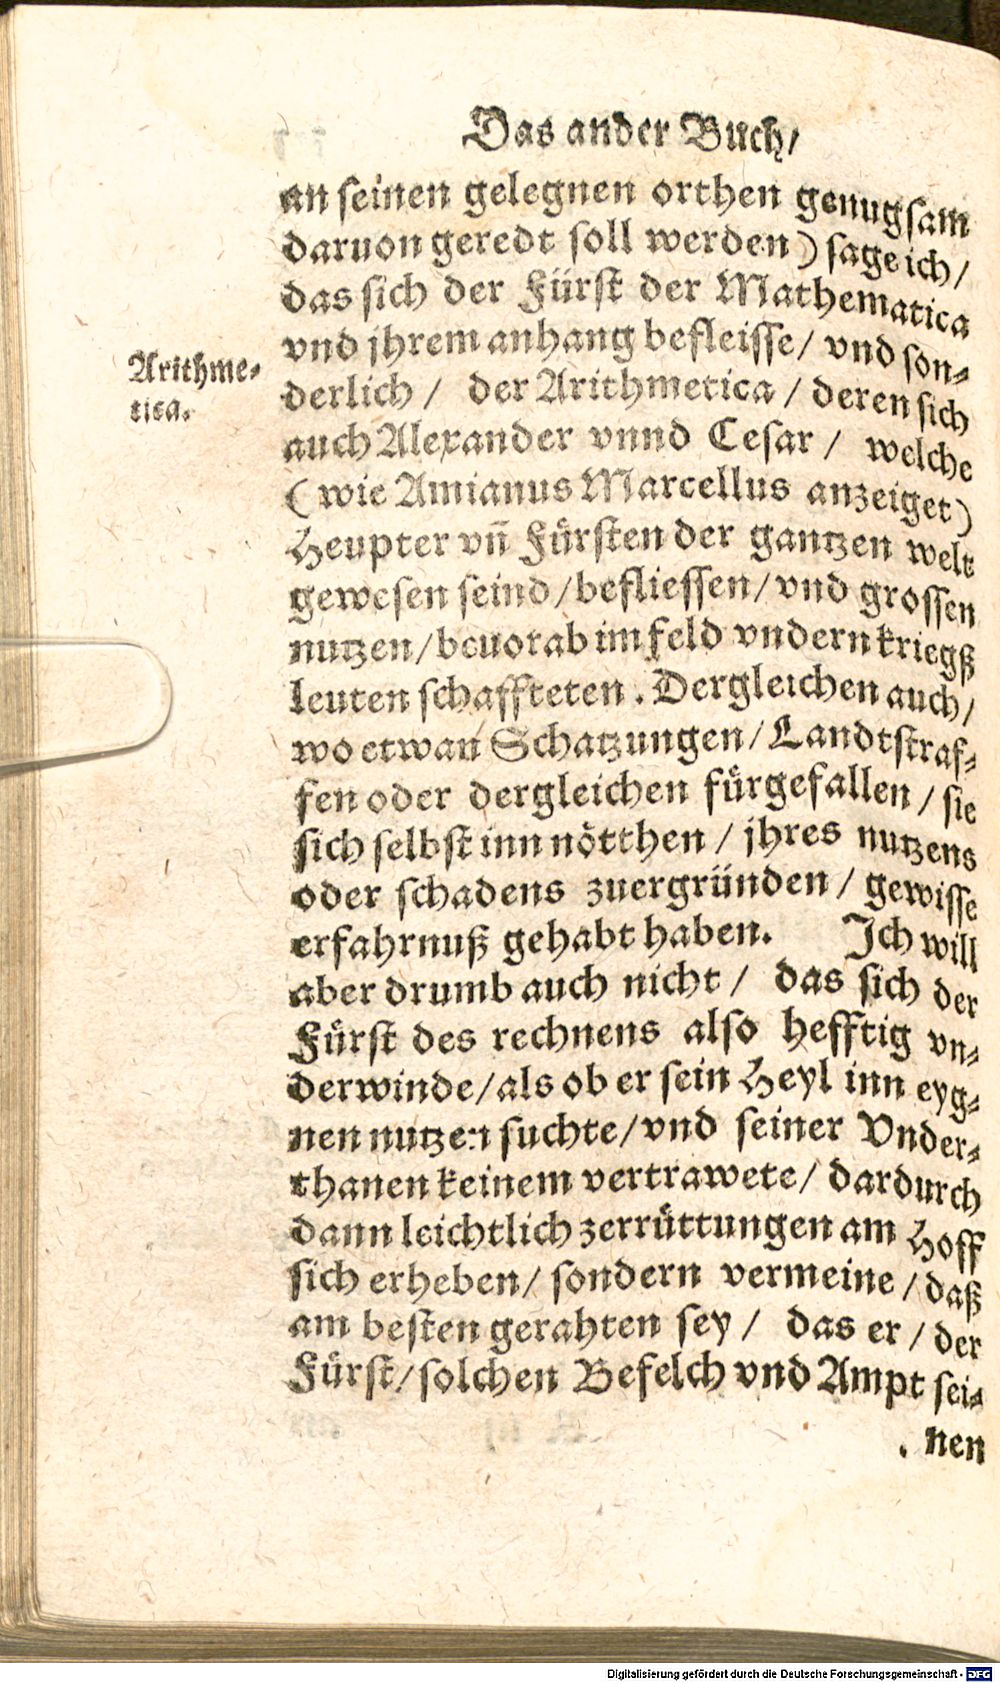 Das ander Buch/
an seinen gelegnen orthen genugsam
daruon geredt soll werden) sage ich/
das sich der Fürst der Mathematica
vnd jhrem anhang befleisse/ vnd son-
Arithme-
tica.
derlich/ der Arithmetica/ deren sich
auch Alexander vnnd Cesar/ welche
(wie Amianus Marcellus anzeiget)
Heupter vñ Fürsten der gantzen welt
gewesen seind/ befliessen/ vnd grossen
nutzen/ beuorab im feld vndern kriegß
leuten schaffteten. Dergleichen auch/
wo etwan Schatzungen/ Landtstraf-
fen oder dergleichen fürgefallen/ sie
sich selbst inn nötthen/ jhres nutzens
oder schadens zuergründen/ gewisse
erfahrnuß gehabt haben. Ich will
aber drumb auch nicht/ das sich der
Fürst des rechnens also hefftig vn-
derwinde/ als ob er sein Heyl inn eyg-
nen nutzen suchte/ vnd seiner Vnder-
thanen keinem vertrawete/ dardurch
dann leichtlich zerrüttungen am Hoff
sich erheben/ sondern vermeine/ daß
am besten gerahten sey/ das er/ der
Fürst/ solchen Befelch vnd Ampt sei-
nen
Digitalisierung gefördert durch die Deutsche Forschungsgemeinschaft - DFG